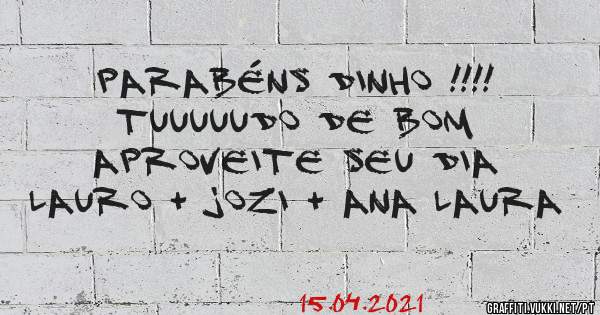 PARABÉNS DINHO !!!!
TUUUUUDO DE BOM
APROVEITE SEU DIA
LAURO + JOZI + ANA LAURA
15.04.2021
GRAFFITI.VUKKI.NET/PT